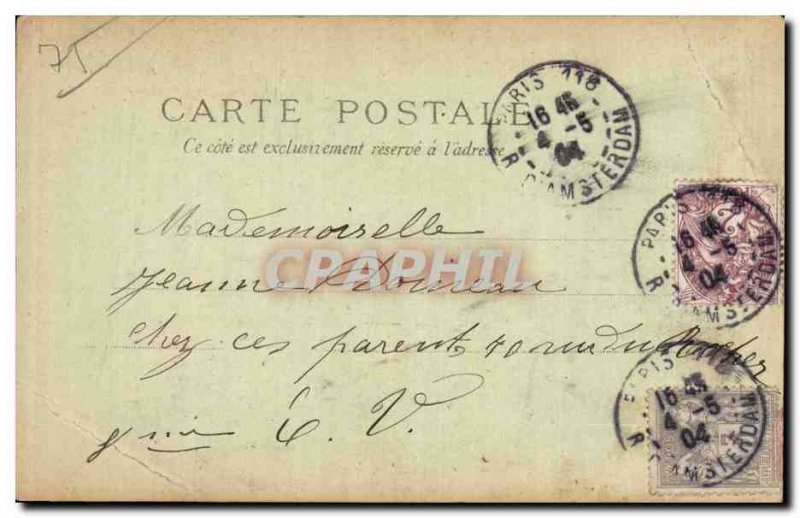 75
CARTE POSTALE
Ce côté est exclusivement réservé à l'adresse
PARIS 118
16 45
4 -5
04
R. D'AMSTERDAM
Mademoiselle
PARIS 118
16 45
4 -5
04
R. D'AMSTERDAM
Jeanne Doineau
CPRAPHIL
chez ces parent 40 rue du Rocher
PARIS
16 45
4 -5
04
R. D'AMSTERDAM
E. V.